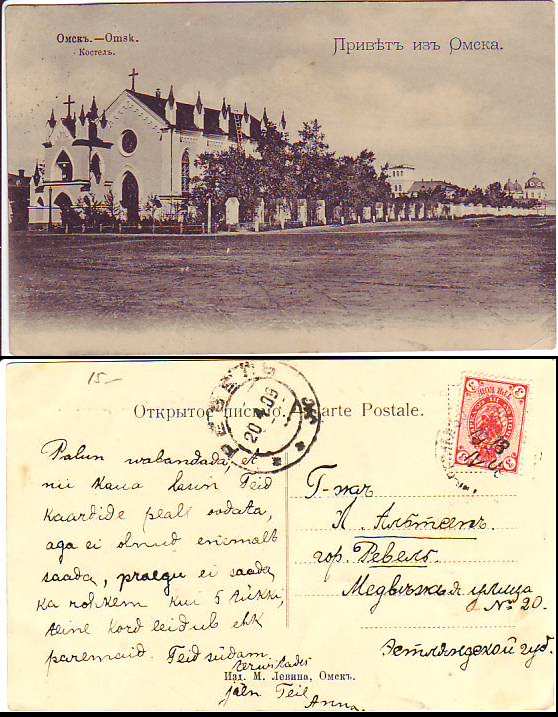 Омскъ.—Omsk.
Костелъ.
Привѣтъ изъ Омска.
15-
Открытое письмо. Carte Postale.
РЕВЕЛЬ
20.4.08
Palun wabandada, A
nii kaua lasin Teid
kaardide pealt oodata,
aga ei olnud enemalt
saada, praegu ei saada
ka rohkem kui 5 tükki,
teine kord leidub ehk
paremaid. Teid südam.
terwitades
jään Teil
Anna.
Г-жѣ
Л. Альтетъ
гор. Ревель.
Медвѣжья улица
№ 20.
Эстляндской губ.
Изд. М. Левина, Омскъ.